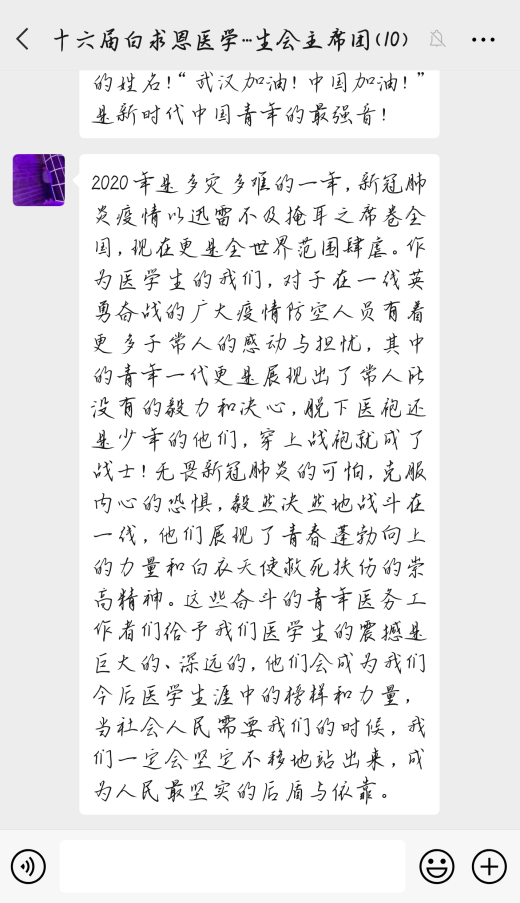 十六届白求恩医学…生会主席团(10)
的姓名!“武汉加油!中国加油!”
是新时代中国青年的最强音!
2020年是多灾多难的一年,新冠肺
炎疫情以迅雷不及掩耳之席卷全
国,现在更是全世界范围肆虐。作
为医学生的我们,对于在一线英
勇奋战的广大疫情防空人员有着
更多于常人的感动与担忧,其中
的青年一代更是展现出了常人所
没有的毅力和决心,脱下医袍还
是少年的他们,穿上战袍就成了
战士!无畏新冠肺炎的可怕,克服
内心的恐惧,毅然决然地战斗在
一线,他们展现了青春蓬勃向上
的力量和白衣天使救死扶伤的崇
高精神。这些奋斗的青年医务工
作者们给予我们医学生的震撼是
巨大的、深远的,他们会成为我们
今后医学生涯中的榜样和力量,
当社会人民需要我们的时候,我
们一定会坚定不移地站出来,成
为人民最坚实的后盾与依靠。